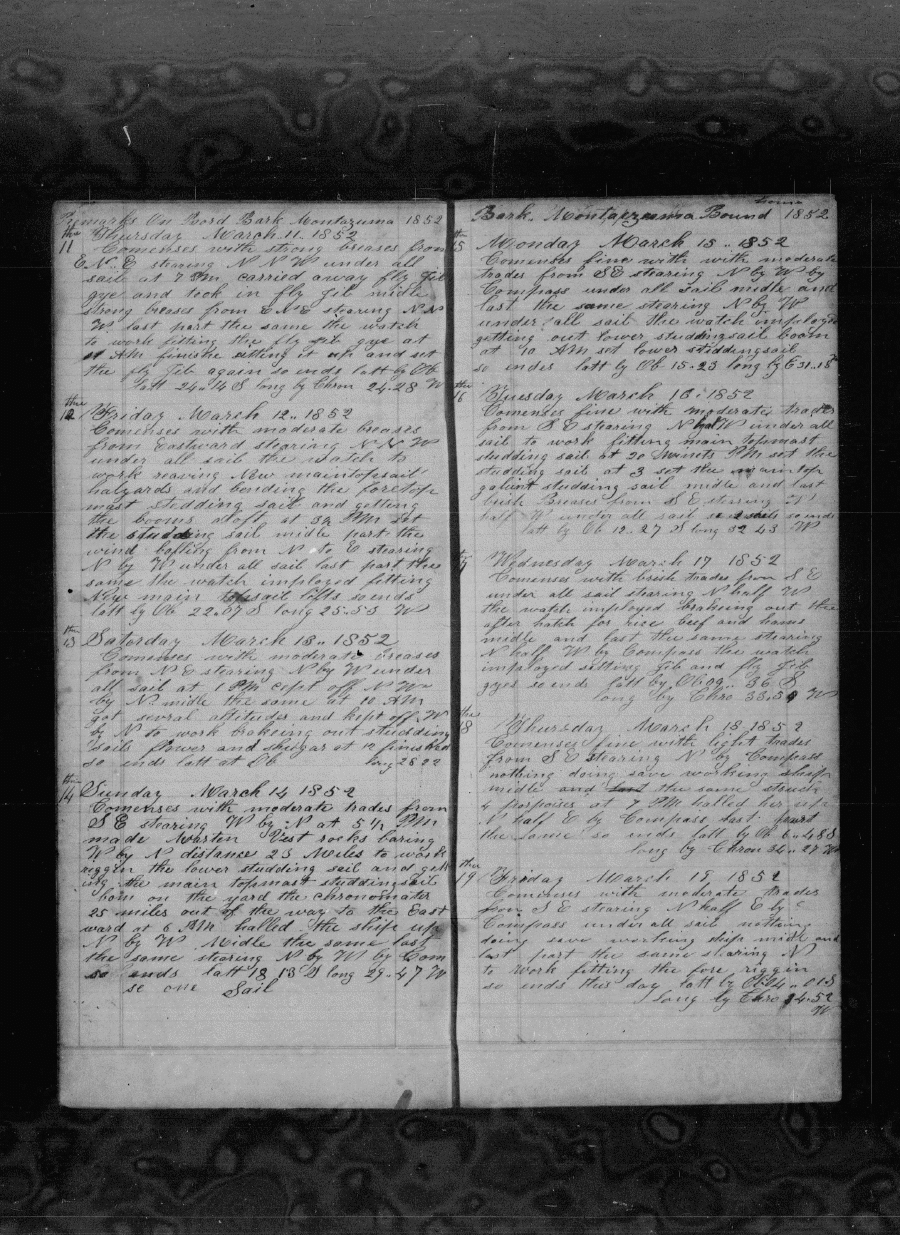 Remarks On Bord Bark Montazuma 1852
thu
11
Thursday March 11.. 1852
Comenses with strong breases from
E N.. E stearing N N W under all
sail at 7 Am carried away fly Jib
gye and took in fly Jib midle
strong breases from E N E stearing N N
W last part the same the watch
to work fitting the fly Jib gye at
11 AM finishe sitting it up and set
the fly Jib again so ends latt by Ob
latt 24..14 S long by Chron 24..28 W
12
Friday March 12.. 1852
Comenses with moderate breases
from Eastward stearing N N W
under all sail the watch to
work reaving New maintopsail
halyards and bending the foretop
mast studding sail and getting
the booms aloft at 3 PM set
the studding sail midle part the
wind bafling from N to E stearing
N by W under all sail last part the
same the watch imployed fitting
New main topsail lifts so ends
latt by Ob 22..07 S long 25..53 W
thu
13
Saturday March 13.. 1852
Comenses with moderate breases
from N E stearing N by W under
all sail at 1 PM cept off N W
by N midle the same at 10 AM
got several altitudes and kept off W
by N to work brakeing out studding
sails flower and shugar at 12 finished
so ends latt at Ob long 28 22
thu
14
Sunday March 14 1852
Comenses with moderate trades from
S E stearing W by N at 5 1/2 PM
made Marten Vest rocks baring
W by N distance 23 Miles to work
riggin the lower studding sail and gett
ing the main topmast studdingsail
bom on the yard the chronomater
25 miles out of the way to the East
ward at 6 PM halled the ship up
N by W Midle the same last
the same stearing N by W by Com
so ends latt 18 13 S long 29..47 W
se one Sail
Bark. Montazuma Bound home 1852
15
Monday March 15.. 1852
Comenses fine with with moderate
trades from S E stearing N by W by
Compass under all Sail midle and
last the same stearing N by W
under all sail the watch imployed
getting out lower studdingsail boom
at 10 AM set lower studdingsail
so endes latt by Ob 15..23 long by C 31..18
thu
16
Tuesday March 16 1852
Comenses fine with moderate trades
from S E stearing N half W under all
sail to work fitting main topmast
studding sail at 20 minets PM set the
studding sail at 3 set the main top
galient studding sail midle and last
brisk Breases from S E stearing N
half W under all sail so ends
latt by Ob 12..27 S long 32 43 W
17
Wednesday March 17 1852
Comenses with brisk trades from S E
under all sail stearing N half W
the watch imployed brakeing out the
after hatch for rise beef and hams
midle and last the same stearing
N half W by Compass the watch
imployed setting Jib and fly Jib
gyes so ends latt by Ob 09.. 36 S
long by Chro 33..34 W
thu
18
Thursday March 18 1852
Comenses fine with light trades
from S E stearing N by Compass
nothing doing save working ship
midle and last the same struck
4 porpoises at 7 PM halled her up
N half E by Compass last part
the same so ends latt by Ob 6..48 S
long by Chron 34..27 W
thu
19
Friday March 19 1852
Comenses with moderate trades
from S E stearing N half E by
Compass under all sail nothing
doing save working ship midle and
last part the same stearing N
to work fitting the fore riggin
so ends this day latt by Ob 4..01 S
long by Chro 34..52
W